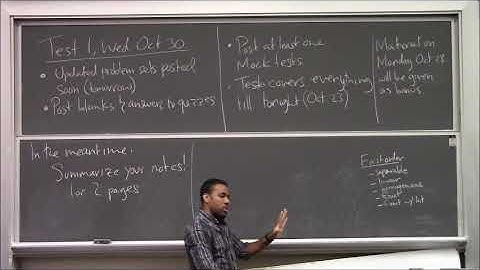 Test 1, Wed Oct 30
• Updated problem sets posted
soon (tomorrow)
• Post blanks & answers to quizzes
• Post at least one
Mock tests.
• Test covers everything
till tonight (Oct 23)
Material on
Monday Oct 28
will be given
as bonus.
In the meantime.
Summarize your notes!
1 or 2 pages
First order
- separable
- linear
- homogeneous
- exact